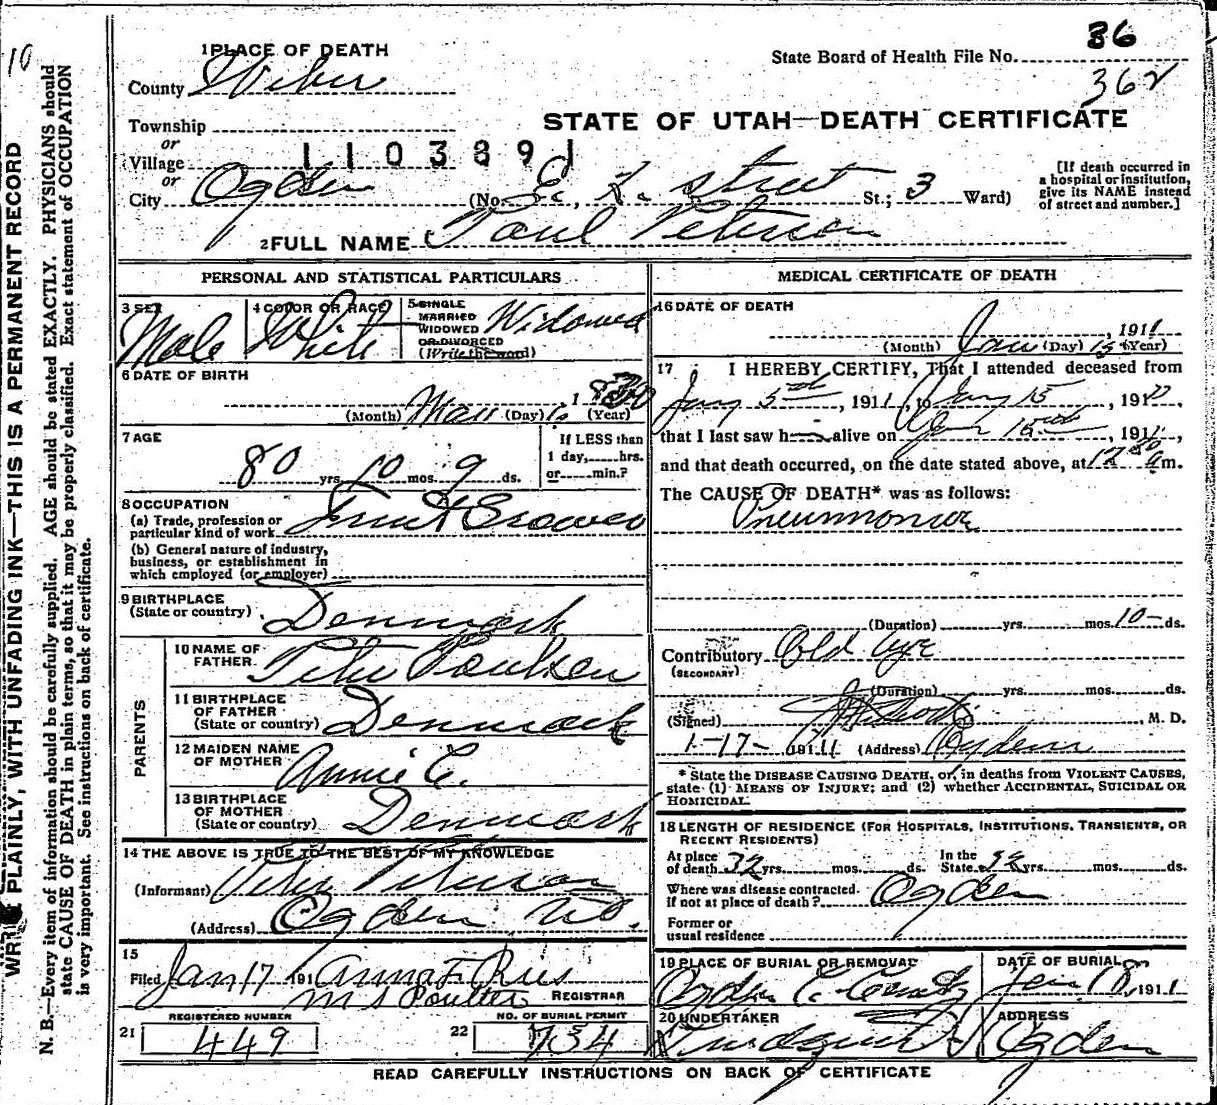 10
WRITE PLAINLY, WITH UNFADING INK—THIS IS A PERMANENT RECORD
N. B.—Every item of information should be carefully supplied. AGE should be stated EXACTLY. PHYSICIANS should
state CAUSE OF DEATH in plain terms, so that it may be properly classified. Exact statement of OCCUPATION
is very important. See instructions on back of certificate.
1 PLACE OF DEATH
State Board of Health File No. 36
362
County Weber
STATE OF UTAH—DEATH CERTIFICATE
Township
or
Village
1103891
or
City Ogden (No. E. X. street St.; 3 Ward)
[If death occurred in
a hospital or institution,
give its NAME instead
of street and number.]
2 FULL NAME Poul Peterson
PERSONAL AND STATISTICAL PARTICULARS
3 SEX Male
4 COLOR OR RACE White
5 SINGLE
MARRIED
WIDOWED
OR DIVORCED
(Write the word)
Widowed
6 DATE OF BIRTH
(Month) Mar (Day) (Year)
7 AGE
80 yrs. 10 mos. 9 ds.
If LESS than
1 day, hrs.
or min.?
8 OCCUPATION
(a) Trade, profession or
particular kind of work Fruit Grower
(b) General nature of industry,
business, or establishment in
which employed (or employer)
9 BIRTHPLACE
(State or country) Denmark
PARENTS
10 NAME OF
FATHER Peter Poulsen
11 BIRTHPLACE
OF FATHER
(State or country) Denmark
12 MAIDEN NAME
OF MOTHER Annie C.
13 BIRTHPLACE
OF MOTHER
(State or country) Denmark
14 THE ABOVE IS TRUE TO THE BEST OF MY KNOWLEDGE
(Informant) Peter Peterson
(Address) Ogden Ut.
15
Filed Jan 17 191 Anna F Rius
M S Poulter REGISTRAR
21 REGISTERED NUMBER
449
22 NO. OF BURIAL PERMIT
734
MEDICAL CERTIFICATE OF DEATH
16 DATE OF DEATH
, 1911
(Month) Jan (Day) 15 (Year)
17 I HEREBY CERTIFY, That I attended deceased from
Jany 5 , 1911, to Jany 15 , 191
that I last saw h alive on Jan 15 , 1911,
and that death occurred, on the date stated above, at 12 m.
The CAUSE OF DEATH* was as follows:
Pneumonia
(Duration) yrs. mos. 10 ds.
Contributory Old age
(SECONDARY)
(Duration) yrs. mos. ds.
(Signed) , M. D.
1-17- 1911 (Address) Ogden
* State the DISEASE CAUSING DEATH, or, in deaths from VIOLENT CAUSES,
state (1) MEANS OF INJURY; and (2) whether ACCIDENTAL, SUICIDAL OR
HOMICIDAL.
18 LENGTH OF RESIDENCE (FOR HOSPITALS, INSTITUTIONS, TRANSIENTS, OR
RECENT RESIDENTS)
At place
of death 32 yrs. mos. ds.
In the
State yrs. mos. ds.
Where was disease contracted
if not at place of death? Ogden
Former or
usual residence
19 PLACE OF BURIAL OR REMOVAL
Ogden C.
DATE OF BURIAL
Jan 18, 1911
20 UNDERTAKER
ADDRESS
Ogden
READ CAREFULLY INSTRUCTIONS ON BACK OF CERTIFICATE